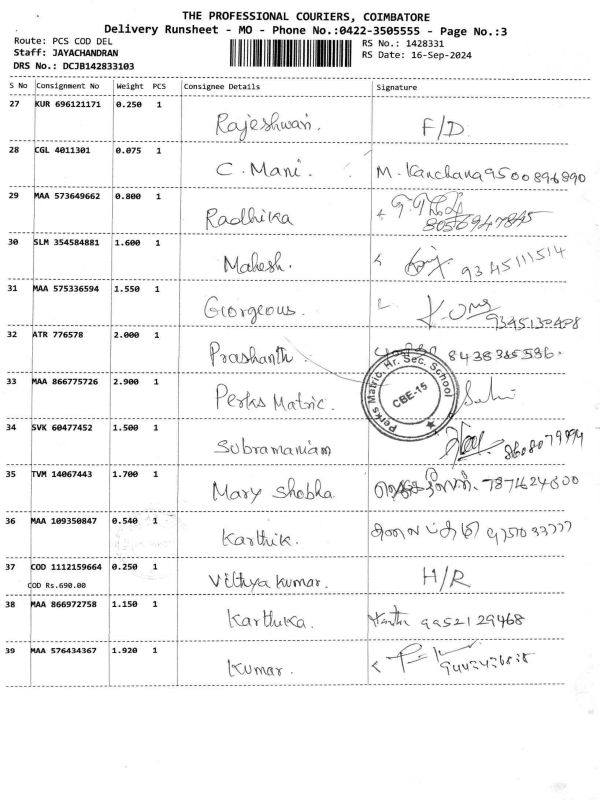 THE PROFESSIONAL COURIERS, COIMBATORE
Delivery Runsheet - MO - Phone No.:0422-3505555 - Page No.:3
Route: PCS COD DEL
RS No.: 1428331
Staff: JAYACHANDRAN
RS Date: 16-Sep-2024
DRS No.: DCJB142833103
S No Consignment No Weight PCS Consignee Details Signature
27 KUR 696121171 0.250 1 Rajeshwari. F/D
28 CGL 4011301 0.075 1 C. Mani. M. Kanchana 9500896890
29 MAA 573649662 0.800 1 Radhika 8056947845
30 SLM 354584881 1.600 1 Mahesh. 9345111514
31 MAA 575336594 1.550 1 Giorgeous.
32 ATR 776578 2.000 1 Prashanth
33 MAA 866775726 2.900 1 Perks Matric.
Perks Matric. Hr. Sec. School
CBE-15
34 SVK 60477452 1.500 1 Subramaniam
35 TVM 14067443 1.700 1 Mary Shobha 7871624800
36 MAA 109350847 0.540 1 Karthik.
37 COD 1112159664 0.250 1 Vithya kumar. H/R
COD Rs.690.00
38 MAA 866972758 1.150 1 Karthika. 9952129468
39 MAA 576434367 1.920 1 Kumar.